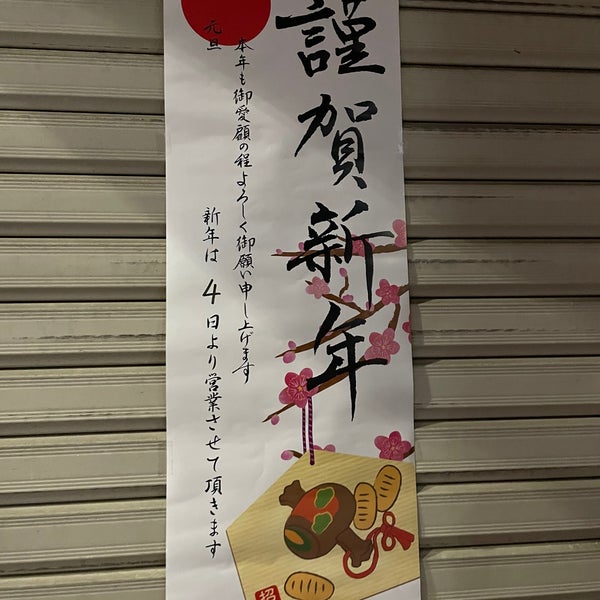 謹賀新年
本年も御愛顧の程よろしく御願い申し上げます
元旦
新年は4日より営業させて頂きます
招